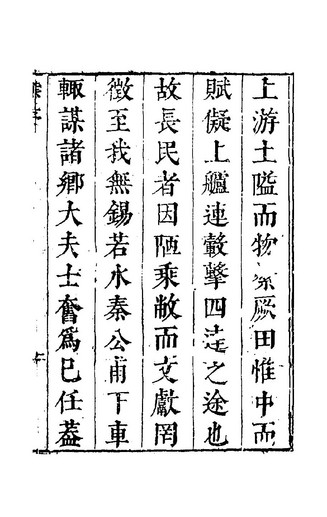 上游土隘而物厥田惟中而
賦儗上艫連轂擊四達之途也
故長民者因陋乘敝而文獻罔
徵至我無錫若水秦公甫下車
輙謀諸鄉大夫士奮爲已任葢